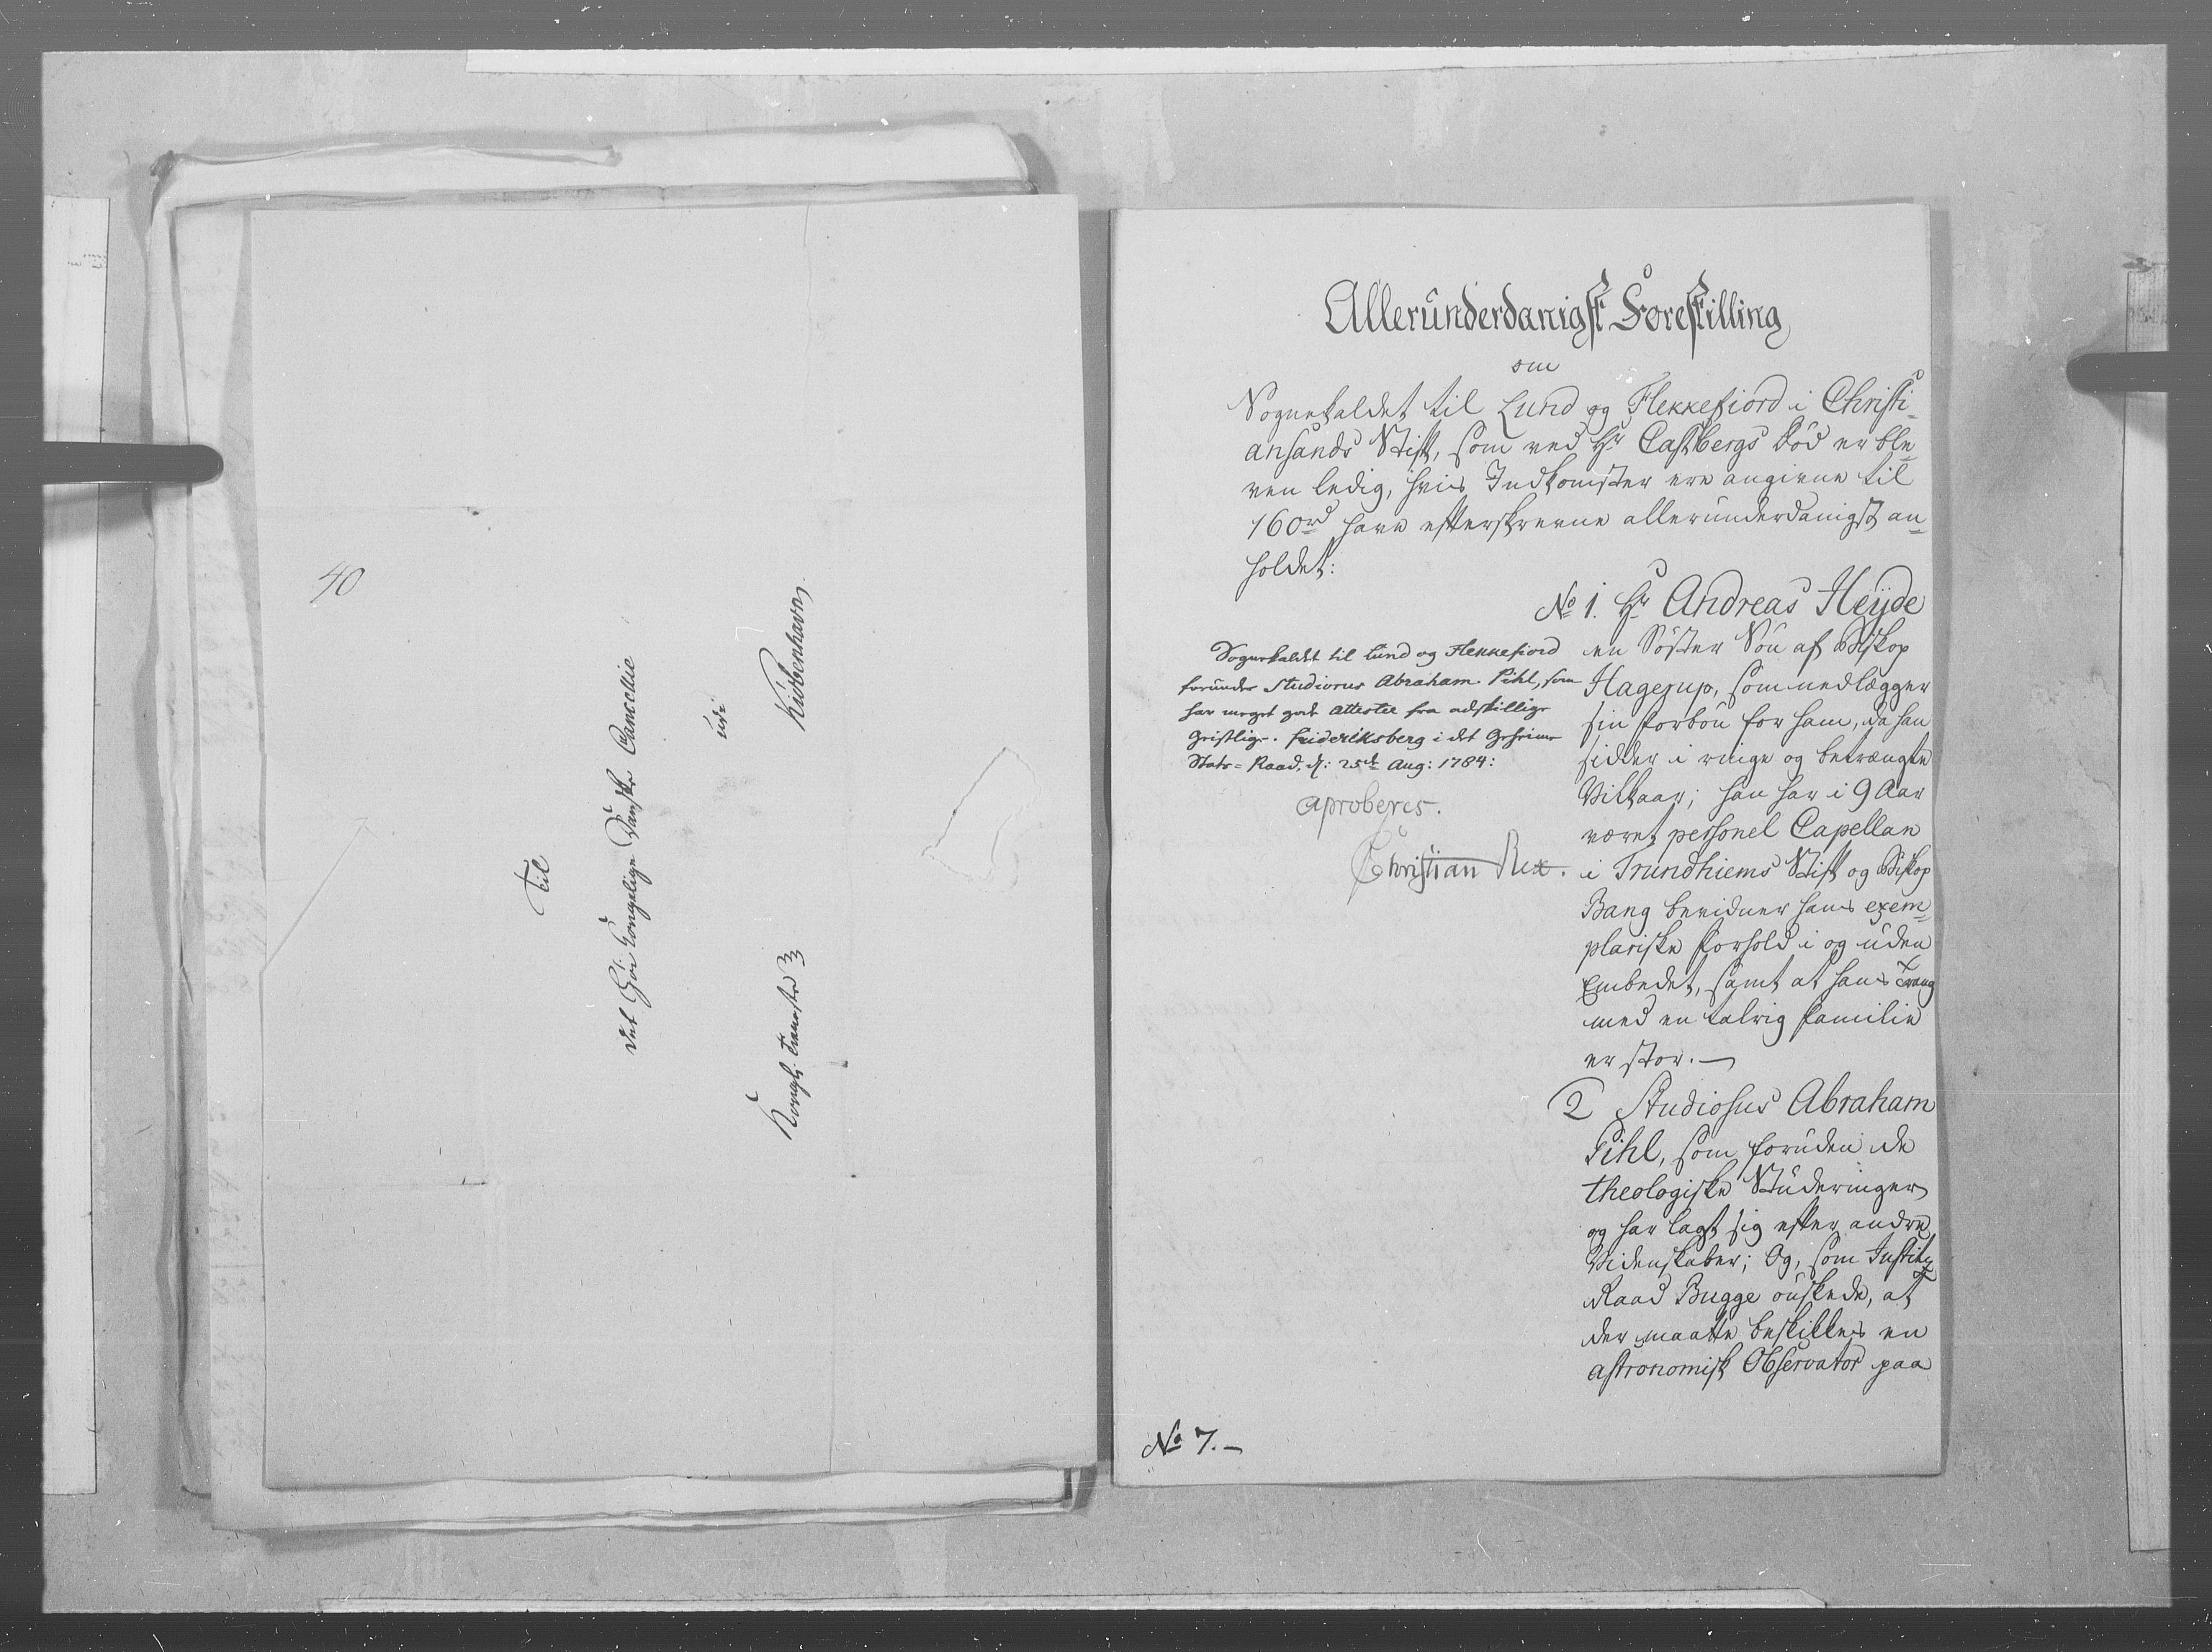 40
Til
det Høi Kongelige Danske Cancellie
udi
Kiøbenhavn.
Kongl: Tieneste
Allerunderdanigst Forestilling
om
Sognekaldet til Lund og Flekkefiord i Christi-
ansands Stift, som ved Hr Castbergs Død er ble-
ven ledig, hvis Indkomster ere angivne til
160 rd have efterskrevne allerunderdanigst an-
holdet:
No 1. Hr Andreas Heyde
en Søster Søn af Biskop
Hagerup, som nedlægger
sin Forbøn for ham, da han
sidder i ringe og betrængte
Vilkaar; han har i 9 Aar
været personel Capellan
i Trundhiems Stift og Biskop
Bang bevidner hans exem-
plariske Forhold i og uden
Embedet, samt at hans Trang
med en talrig Familie
er stor. —
2 Studiosus Abraham
Pihl, som foruden de
theologiske Studeringer
og har lagt sig efter andre
Videnskaber; Og, som Justitz
Raad Bugge ønskede, at
der maatte beskikkes en
astronomisk Observator paa
Sognekaldet til Lund og Flekkefiord
forundes Studiosus Abraham Pihl, som
har meget gode Attester fra adskillige
Geistlige. Frideriksberg i det Geheime
Stats-Raad, d: 25de Aug: 1784:
aproberes.
Christian Rex.
No 7. —